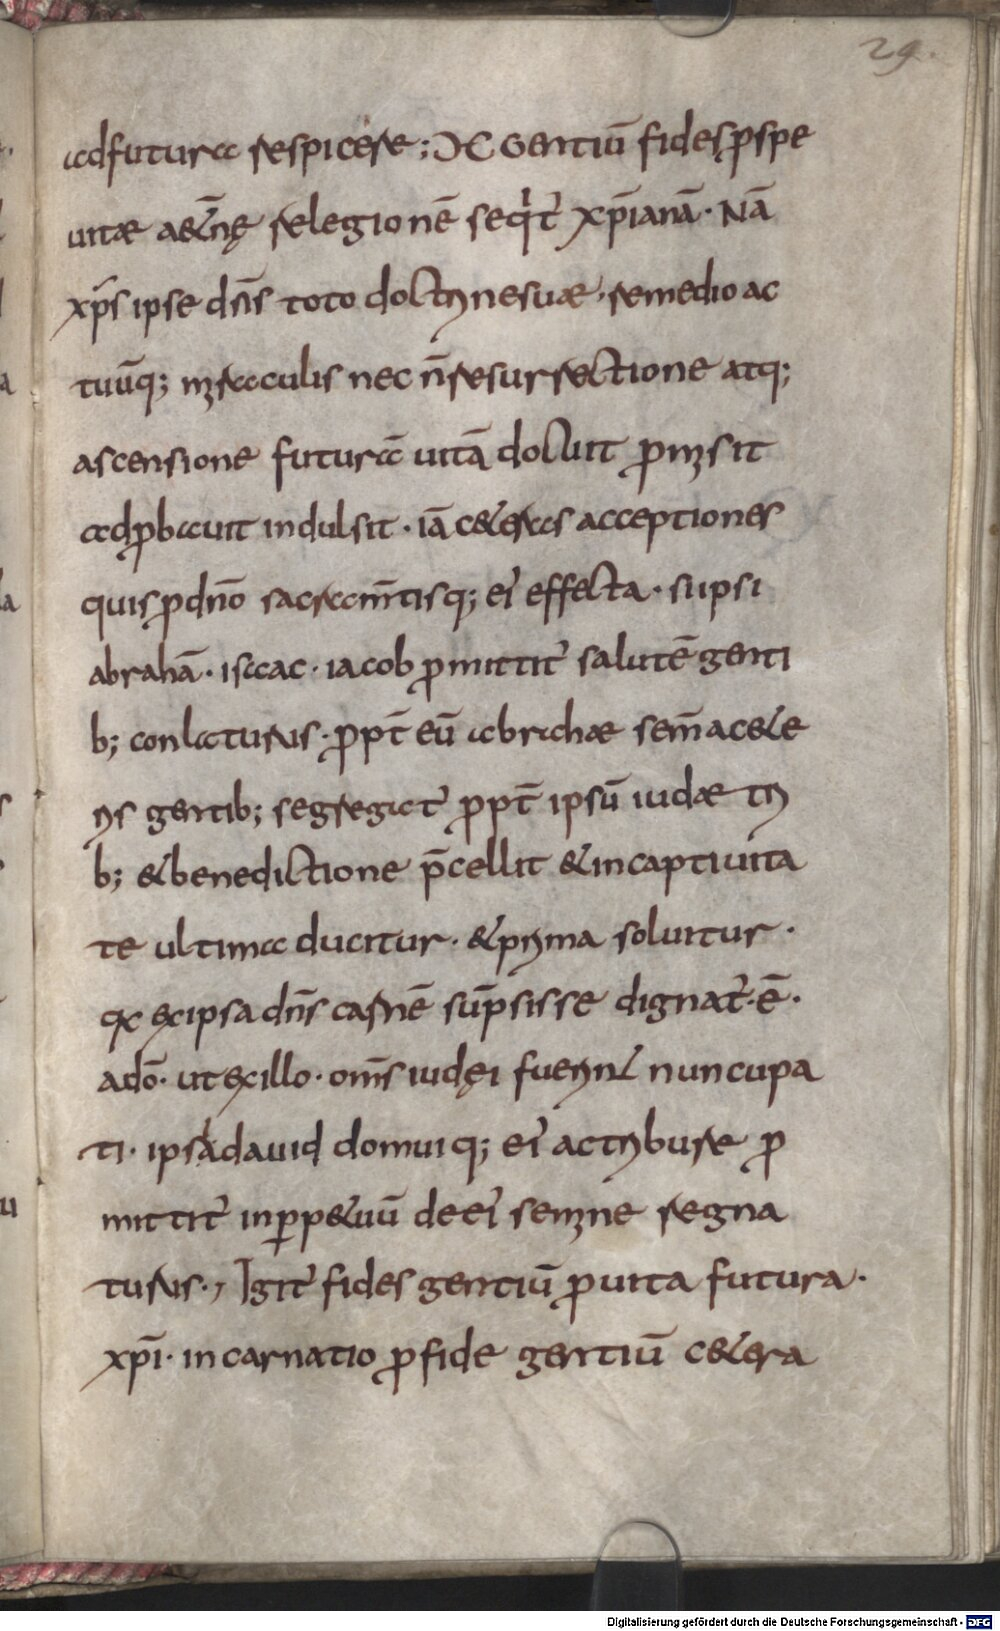 29.
ad futura respicere; DE Gentiū fides ꝓ spe
uitæ aet̄nę relegionē seq̇t̛ xp̄ianā. Nā
xp̄s ipse dn̄s toto doctrine suæ. remedio ac
tuūq; miraculis nec n̄ resurrectione atq;
ascensione futurā uitā docuit promisit
adprobauit indulsit. iā ceteras acceptiones
quis ꝓ dn̄o sacram̄tisq; ei̛ effecta. sup si
abrahā. isaac. iacob ꝓmittit̛ salutē genti
b; conlaturus. ꝓpt̄ eū abrahæ sem̄ a cete
ris gentib; segregat̛ ꝓpt̄ ipsū iudæ tri
b; & benedictione p̄cellit & in captiuita
te ultima ducitur. & prima soluitur.
qa ex ipsa dn̄s carnē sūpsisse dignat̛. ē.
adō. ut ex illo. om̄s iudęi fuerint nuncupa
ti. ipsa dauid domuiq; ei̛ actribuere ꝓ
mittit̛ in ꝑpetuū de ei̛ semine regna
turus., Igit̛ fides gentiū ꝓ uita futura.
xp̄i. incarnatio ꝓ fide gentiū cetera
Digitalisierung gefördert durch die Deutsche Forschungsgemeinschaft - DFG